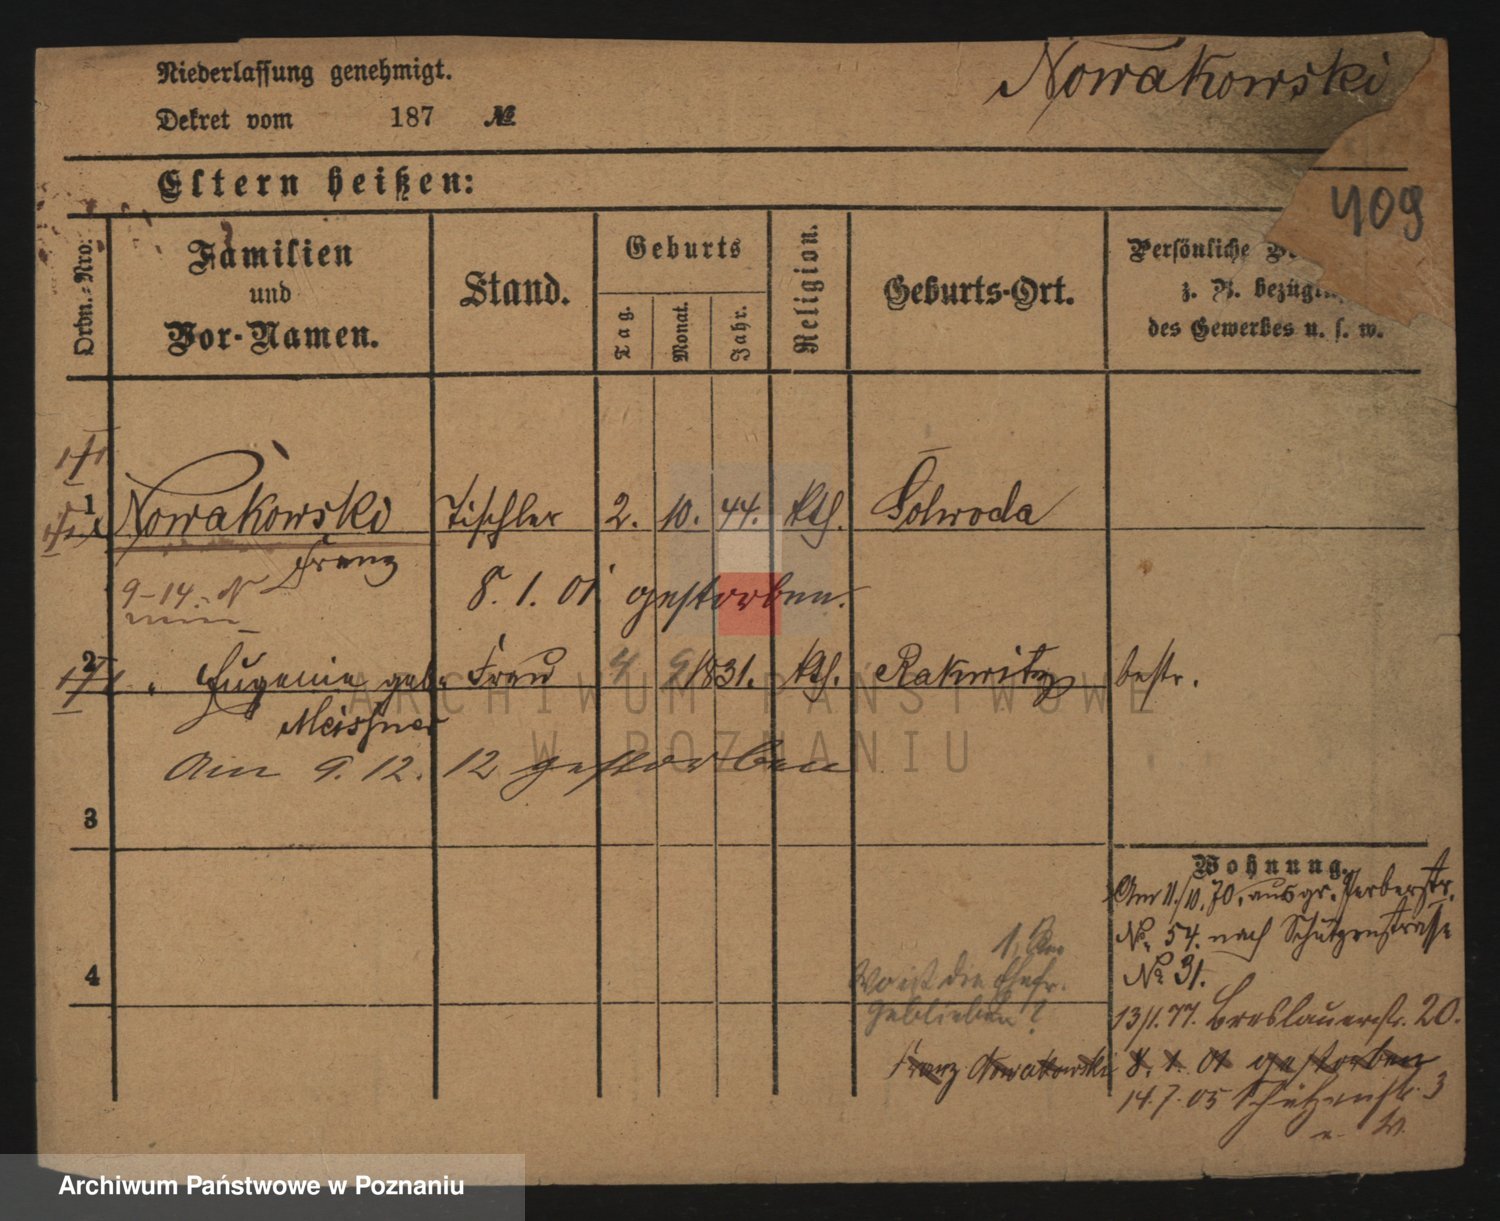 Niederlassung genehmigt.
Nowakowski
Dekret vom 187 №
Eltern heißen:
409
Ordn.-Nro.
Familien
und
Vor-Namen.
Stand.
Geburts
Tag.
Monat.
Jahr.
Religion.
Geburts-Ort.
Persönliche
z. B. bezügl
des Gewerbes u. s. w.
1 Nowakowski Tischler 2. 10. 44. kth.
Franz
9-14.
8. 1. 01 gestorben.
2 " Eugenie geb. Frau 4 9 1831. kth. Rakwitz bestr.
Meissner
Am 9. 12. 12 gestorben
3
4
Wohnung.
Am 11./10. 70. aus gr. Gerberstr.
No. 54. nach Schützenstrasse
No 31.
13/1. 77. Breslauerstr. 20.
Franz Nowakowski 8. 1. 01 gestorben
14. 7. 05 Schützenstr. 3
1.
Wo ist die Ehefr.
geblieben?
ARCHIWUM PAŃSTWOWE
W POZNANIU
Archiwum Państwowe w Poznaniu